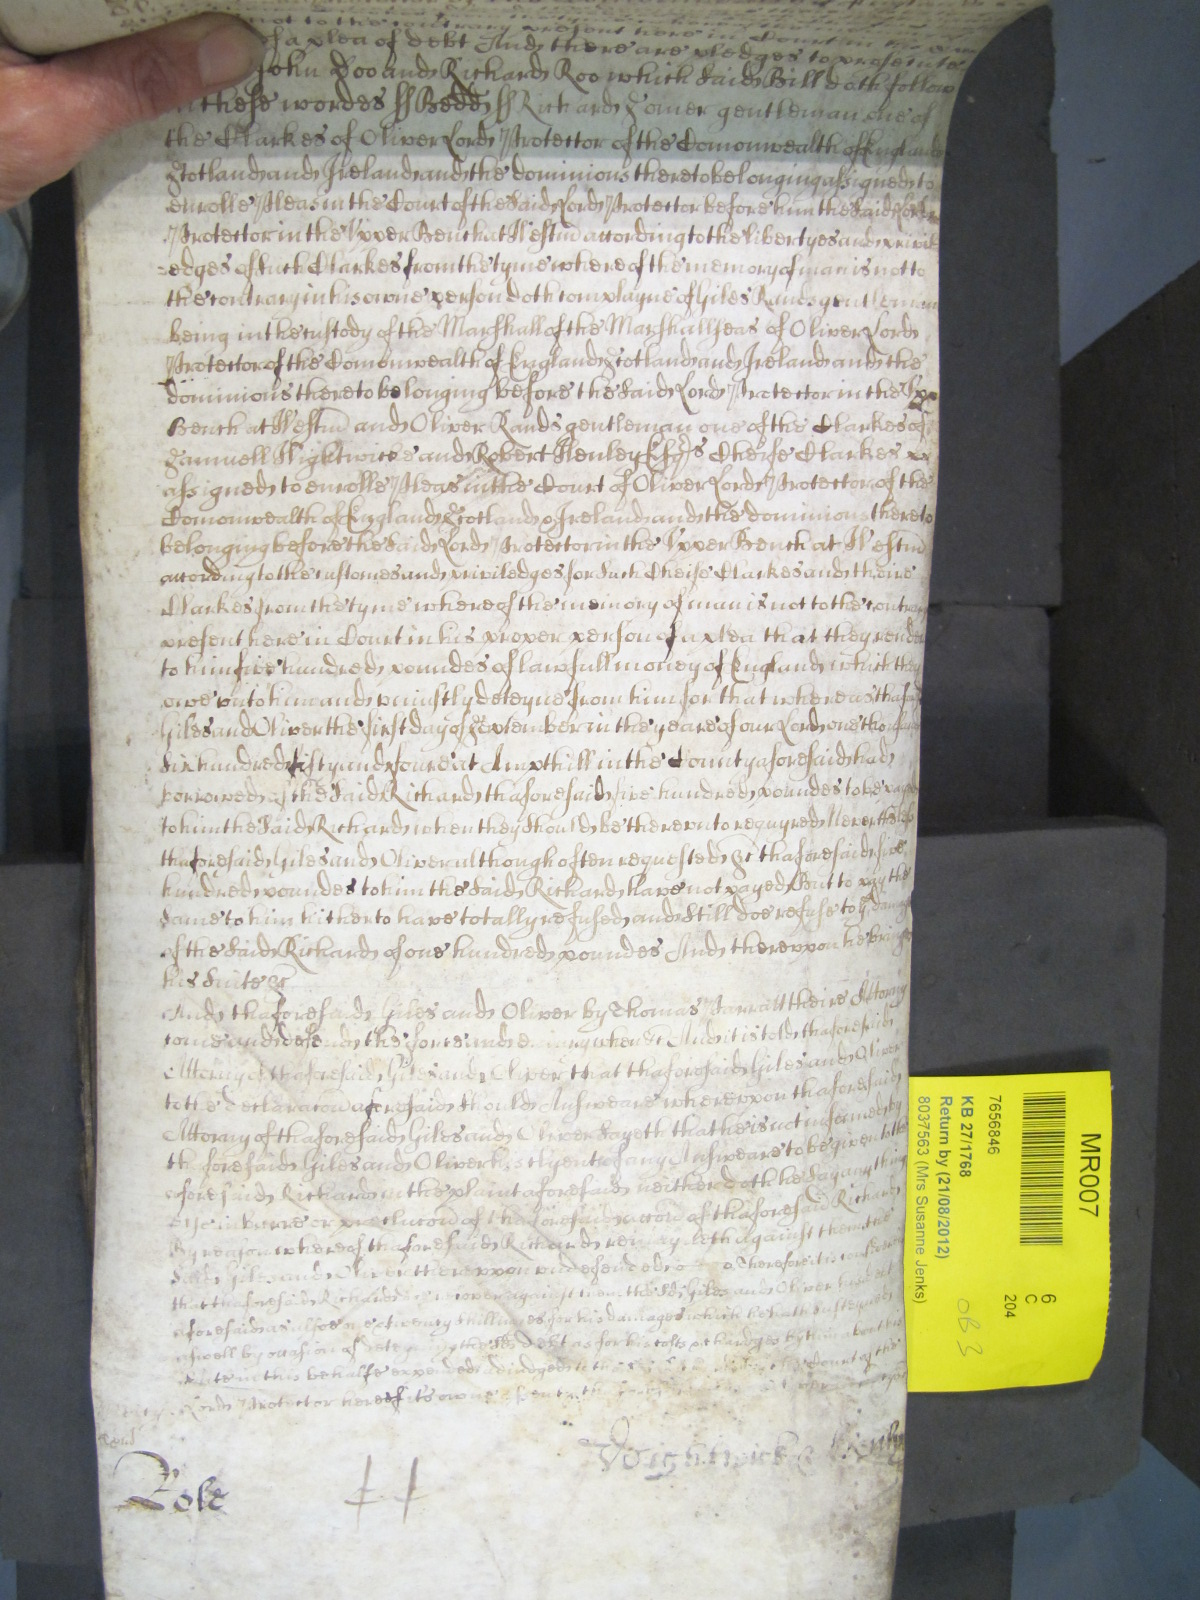 not to the contrary present here in Court in
of a plea of debt And there are pledges to prosecute
John Doo and Richard Roo which said Bill doth follow
in these wordes ss Bedd ss Richard Somer gentleman one of
the Clarkes of Oliver Lord Protector of the Comonwealth of England
Scotland and Ireland and the dominions thereto belonging assigned to
enrolle Pleas in the Court of the said Lord Protector before him the said Lord
Protector in the Upper Bench at Westm according to the libertyes and privil
=edges of such Clarkes from the tyme whereof the memory of man is not to
the contrary in his owne person doth complayne of Giles Rands gentleman
being in the custody of the Marshall of the Marshallseas of Oliver Lord
Protector of the Comonwealth of England Scotland and Ireland and the
dominions thereto belonging before the said Lord Protector in the Upp
Bench at Westm and Oliver Rands gentleman one of the Clarkes of
Samuell Wightwicke and Robert Henley Esqrs Cheife Clarkes
assigned to enrolle Pleas in the Court of Oliver Lord Protector of the
Comonwealth of England Scotland & Ireland and the dominions thereto
belonging before the said Lord Protector in the Upper Bench at Westm
according to the customes and priviledges for such Cheife Clarkes and theire
Clarkes from the tyme whereof the memory of man is not to the contrary
present here in Court in his proper person of a plea that they render
to him five hundred poundes of lawfull money of England which they
owe unto him and uniustly deteyne from him for that whereas thafor
Giles and Oliver the first day of September in the yeare of our Lord one thousand
six hundred fifty and foure at Ampthill in the County aforesaid had
borrowed of the said Richard thaforesaid five hundred poundes to be payed
to him the said Richard when they should be thereunto requyred Neverthelesse
thaforesaid Giles and Oliver although often requested &c thaforesaid five
hundred poundes to him the said Richard have not payed But to pay the
same to him hitherto have totally refused and still doe refuse to ye damage
of the said Richard of one hundred poundes And thereupon he brings
his suite &c
And thaforesaid Giles and Oliver by Thomas Jarrall theire Attorny
come and defend the force and iniury when &c And it is told thaforesaid
Attorny of thaforesaid Giles and Oliver that thaforesaid Giles and Oliver
to the declaracon aforesaid should Answeare whereupon thaforesaid
Attorny of thaforesaid Giles and Oliver sayeth that he is not informed by
thaforesaid Giles and Oliver his Clyents of any Answeare to be given to the
aforesaid Richard in the plaint aforesaid neither doth he say any thing
else in barre or preclucon of thaforesaid accon of thaforesaid Richard
By reason whereof thaforesaid Richard remayneth against them the
said Giles and Oliver thereupon undefended Therefore it is considered
that thaforesaid Richard doe recover against them the sd Giles and Oliver his debt
aforesaid as alsoe twenty shillinges for his damages which he hath susteyned
aswell by occasion of deteyning the sd debt as for his costs & chardges by him about his
suite in this behalfe expended adiudged to the Court of the
Lord Protector here of its owne
Wightwick & Henley
Role
MR007
6
C
204
7656846
KB 27/1768
Return by (21/08/2012)
8037563 (Mrs Susanne Jenks)
OB3